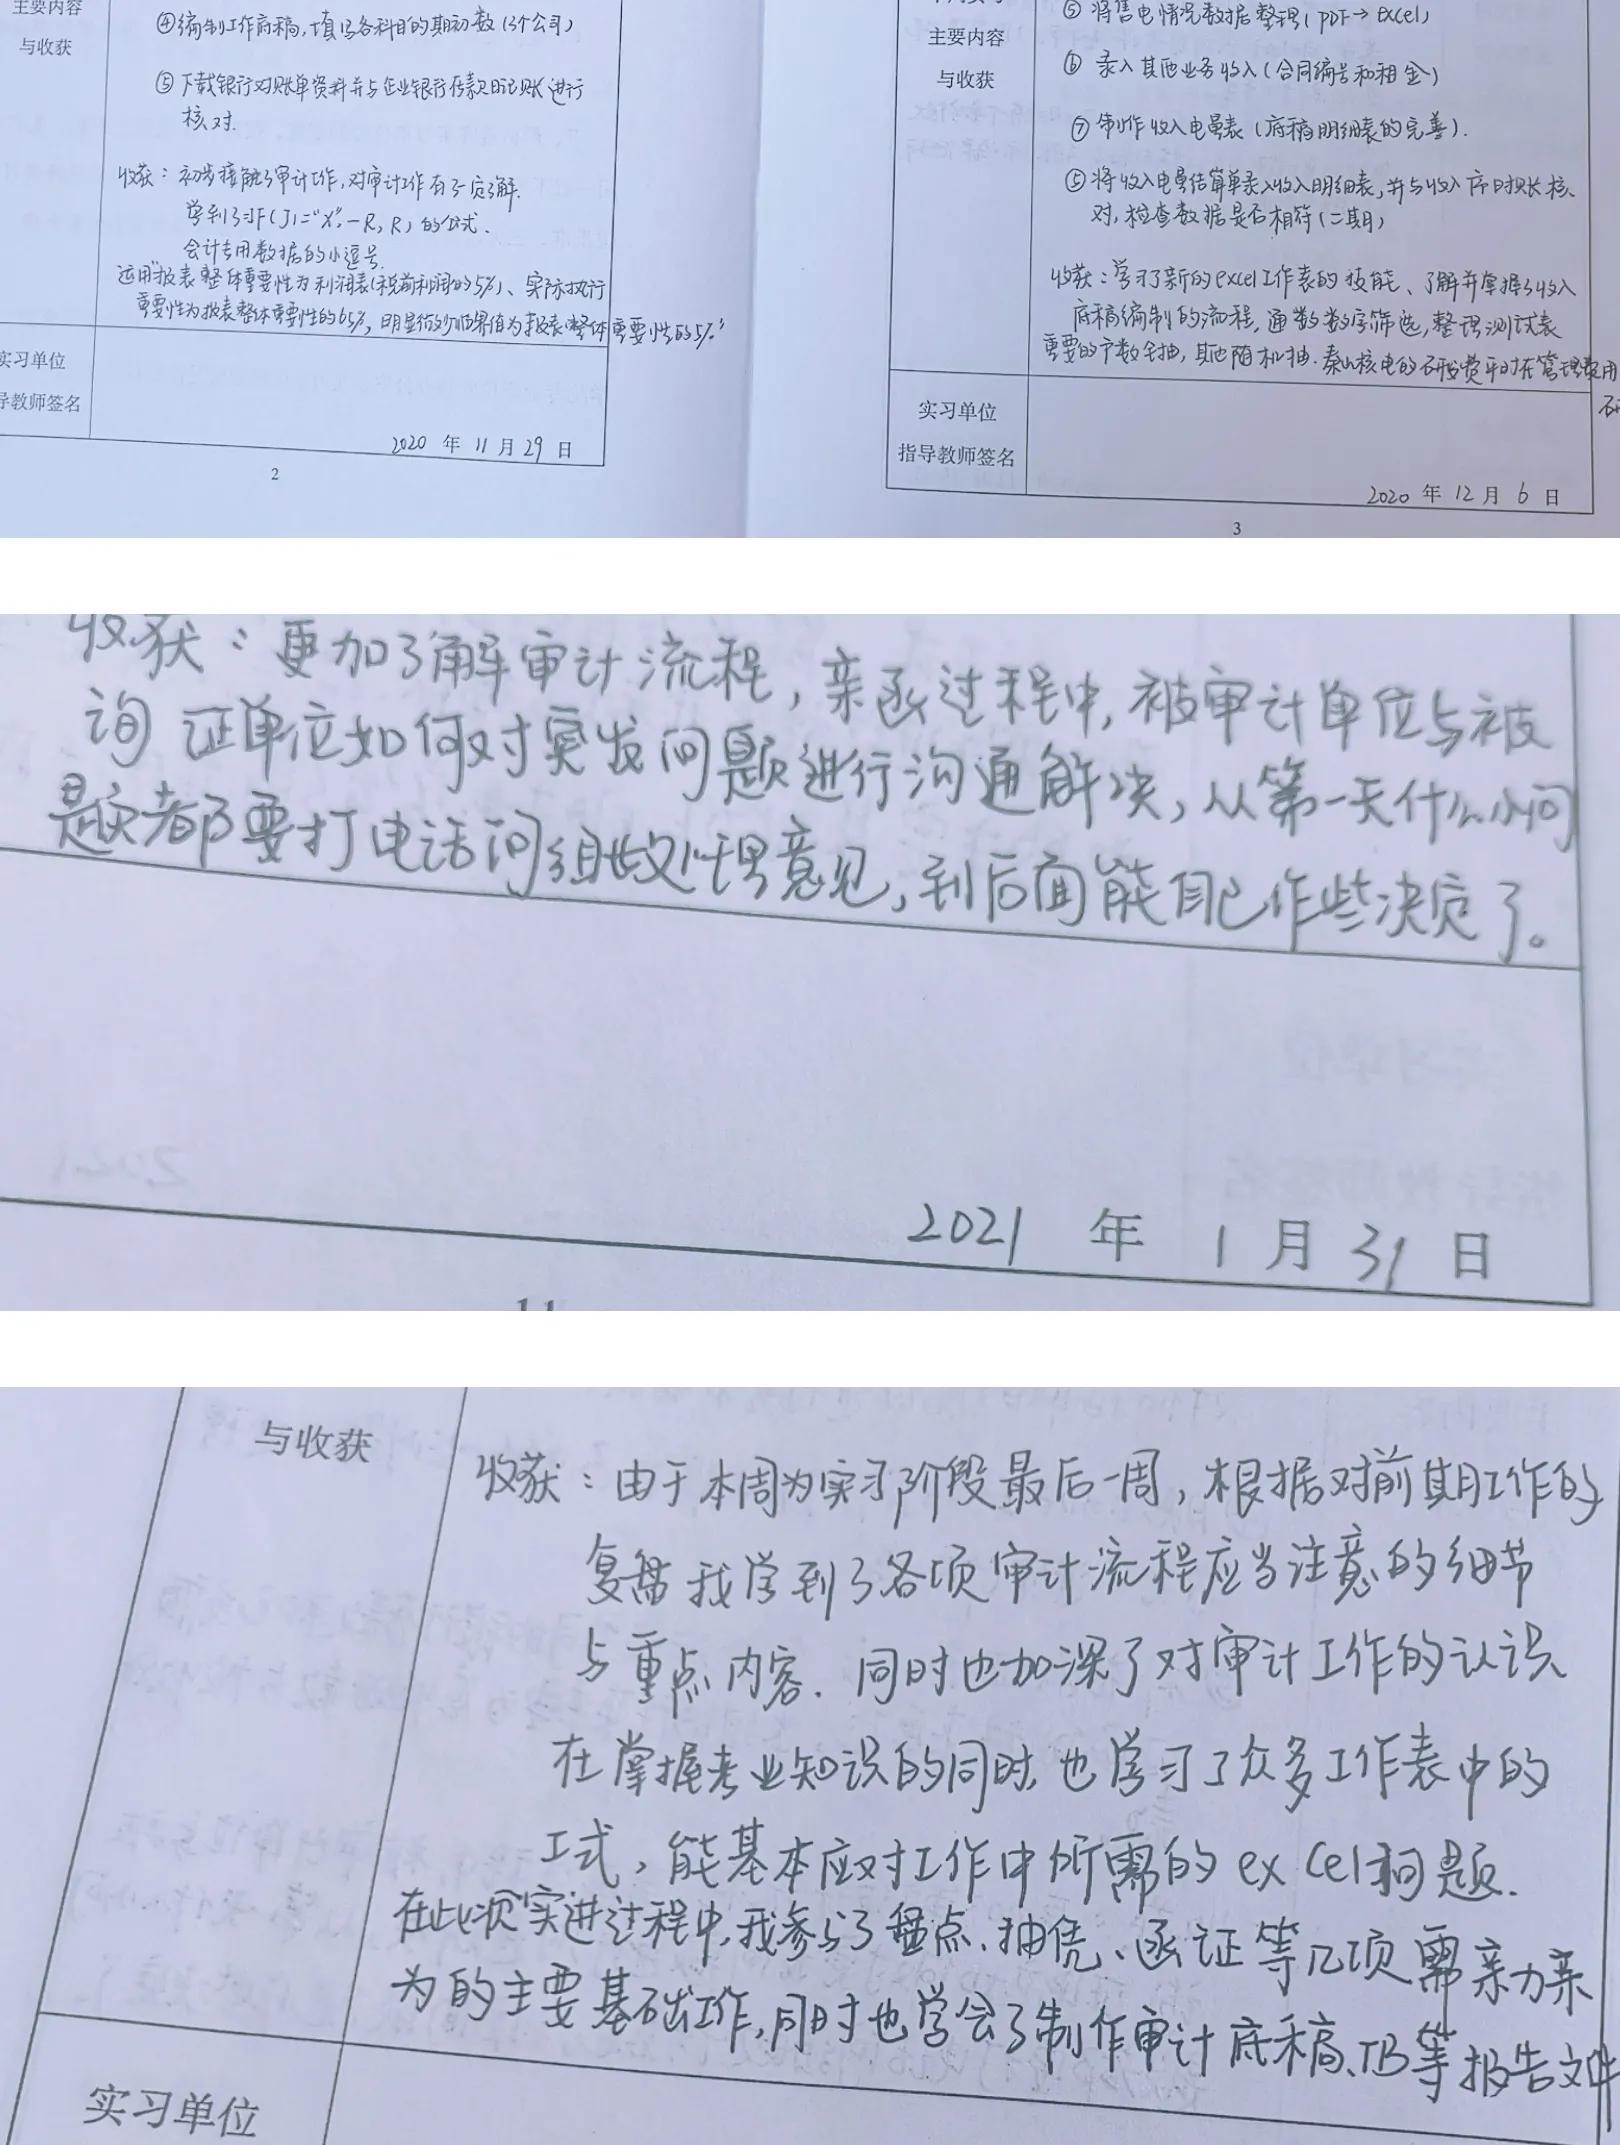 主要内容
与收获
④编制工作底稿,填写各科目的期初数(3个公司)
⑤下载银行对账单资料并与企业银行存款日记账进行
核对.
收获:初步接触了审计工作,对审计工作有了一定了解.
学到了=IF(J1="X",-R,R)的公式.
会计专用数据的小逗号.
运用"报表整体重要性为利润表(税前利润的5%)、实际执行
重要性为报表整体重要性的65%,明显微小临界值为报表整体重要性的5%"
实习单位
导教师签名
2020 年 11 月 29 日
2
⑤ 将售电情况数据整理(PDF→excel)
主要内容
与收获
⑥ 录入其他业务收入(合同编号和租金)
⑦ 制作收入电量表(底稿明细表的完善).
⑤将收入电量结算单录入收入明细表,并与收入序时账长核
对,检查数据是否相符(二期)
收获:学习了新的excel工作表的技能、了解并掌握了收入
底稿编制的流程,通数数字筛选,整理测试表
重要的户数全抽,其他随机抽.秦山核电的研发费平时在管理费用
研
实习单位
指导教师签名
2020 年 12 月 6 日
3
收获:更加了解审计流程,亲函过程中,被审计单位与被
询证单位如何对突发问题进行沟通解决,从第一天什么小问
题都要打电话问组长处理意见,到后面能自己作些决定了。
2021 年 1 月 31 日
11
与收获
收获:由于本周为实习阶段最后一周,根据对前期工作的
复盘我学到了各项审计流程应当注意的细节
与重点内容.同时也加深了对审计工作的认识
在掌握专业知识的同时,也学习了众多工作表中的
工式,能基本应对工作中所需的excel问题.
在此次实进过程中,我参与了盘点、抽凭、函证等几项需亲力亲
为的主要基础工作,同时也学会了制作审计底稿、TB等报告文件
实习单位